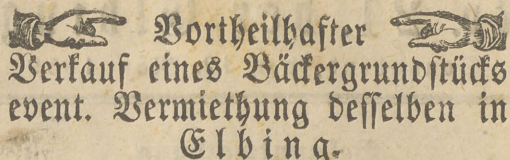 Vortheilhafter
Verkauf eines Bäckergrundstücks
event. Vermiethung desselben in
Elbing.